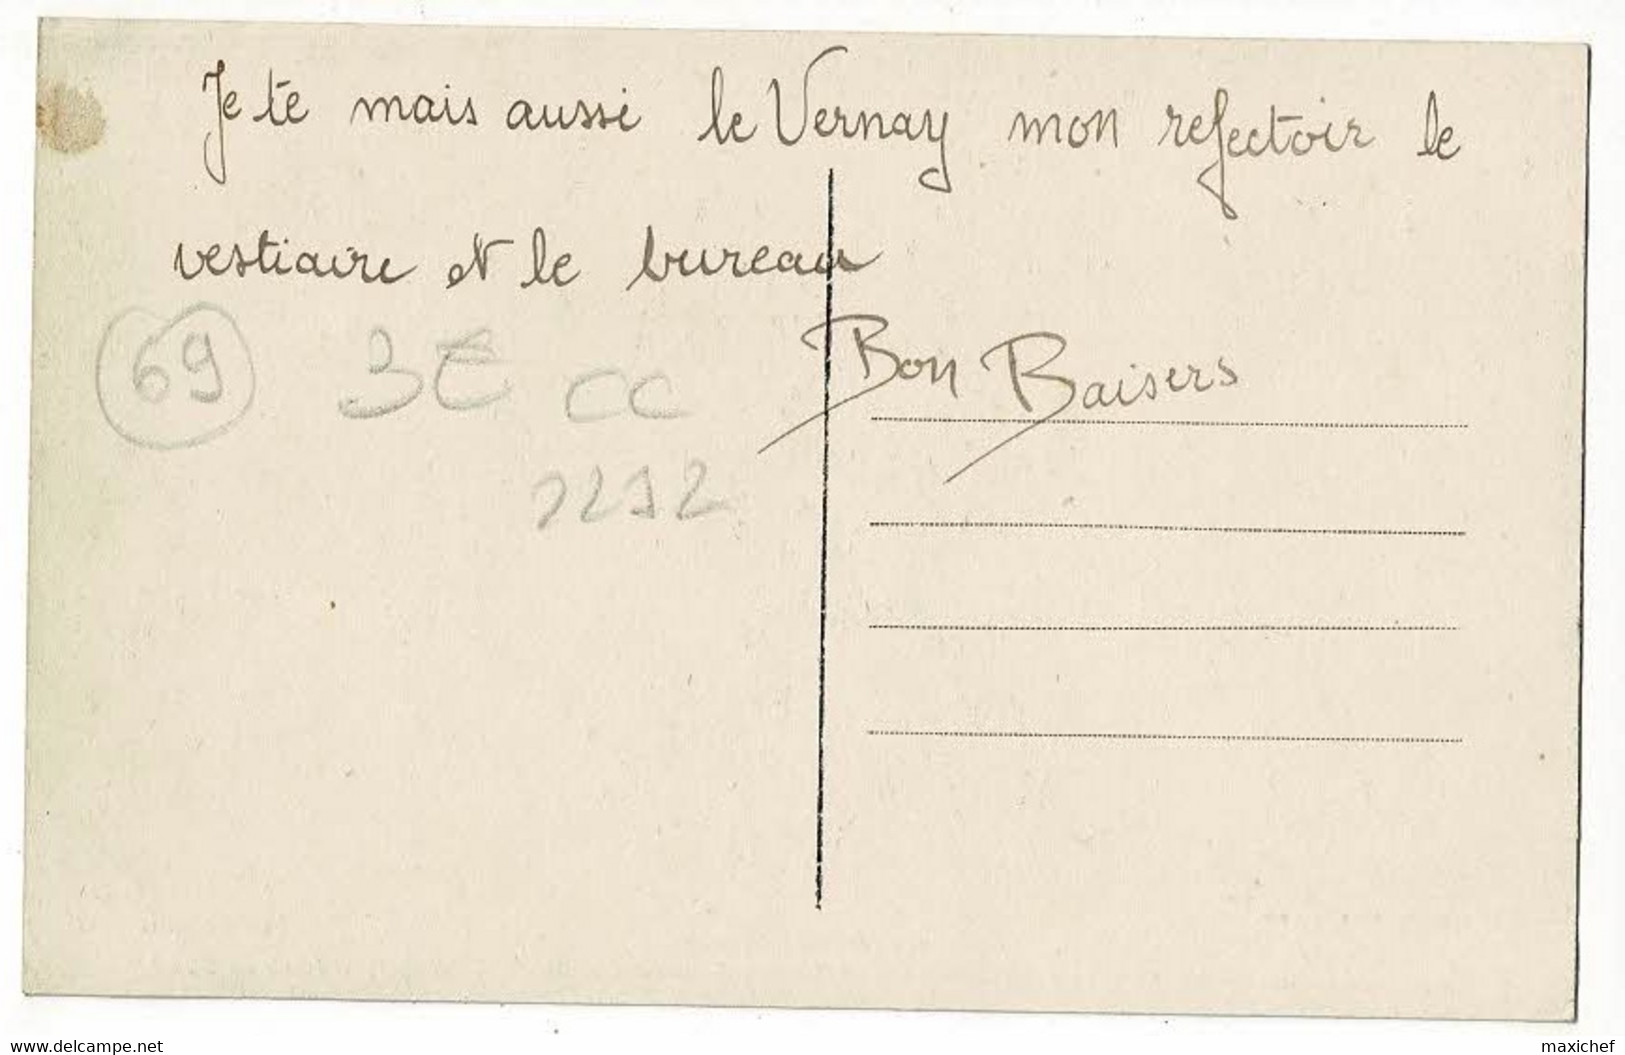 Je té mais aussi le Vernay mon refectoir le
vestiaire et le bureau
Bon Baisers
69 3E CC
www.delcampe.net
maxichef